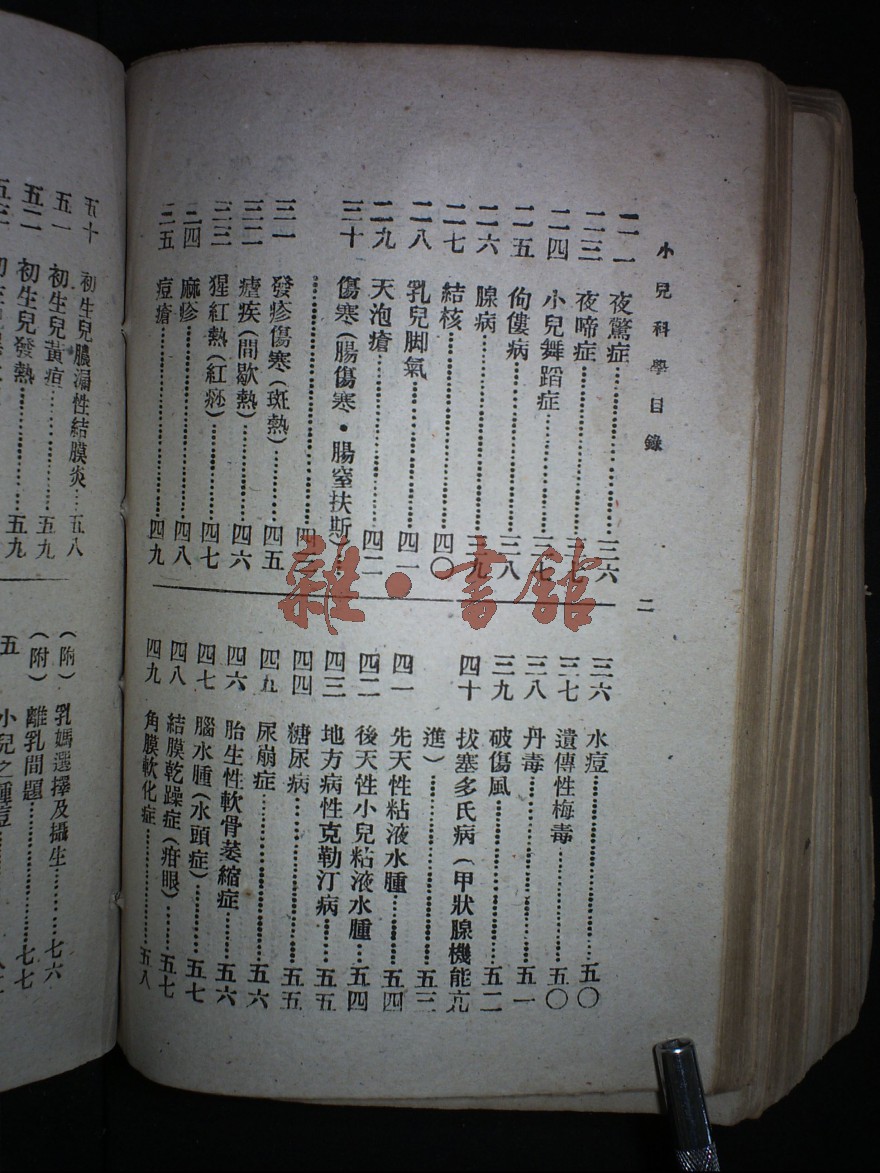 小兒科學目錄 二
二二 夜驚症……三六
二三 夜啼症……三七
二四 小兒舞蹈症……三七
二五 佝僂病……三八
二六 腺病……三九
二七 結核……四〇
二八 乳兒脚氣……四一
二九 天泡瘡……四二
三十 傷寒(腸傷寒・腸窒扶斯)…
……四
三一 發疹傷寒(斑熱)……四五
三二 瘧疾(間歇熱)……四六
三三 猩紅熱(紅痧)……四七
三四 麻疹……四八
三五 痘瘡……四九
三六 水痘……五〇
三七 遺傳性梅毒……五〇
三八 丹毒……五一
三九 破傷風……五二
四十 拔塞多氏病(甲狀腺機能亢
進)……五三
四一 先天性粘液水腫……五四
四二 後天性小兒粘液水腫……五四
四三 地方病性克勒汀病……五五
四四 糖尿病……五五
四五 尿崩症……五六
四六 胎生性軟骨萎縮症……五六
四七 腦水腫(水頭症)……五七
四八 結膜乾躁症(疳眼)……五七
四九 角膜軟化症……五八
五十 初生兒膿漏性結膜炎…五八
五一 初生兒黃疸……五九
五二 初生兒發熱……五九
(附)乳媽選擇及攝生……七六
(附)離乳問題……七七
五 小兒之種痘
雜・書館